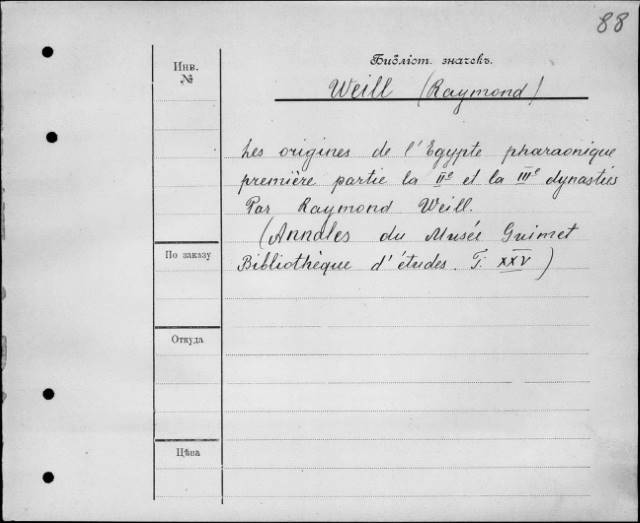 88
Библіот. значекъ.
Инв.
№
Weill (Raymond)
Les origines de l'Egypte pharaonique
première partie la IIe et la IIIe dynasties
Par Raymond Weill.
(Annales du Musée Guimet
По заказу
Bibliothèque d'études. T. XXV)
Откуда
Цѣна